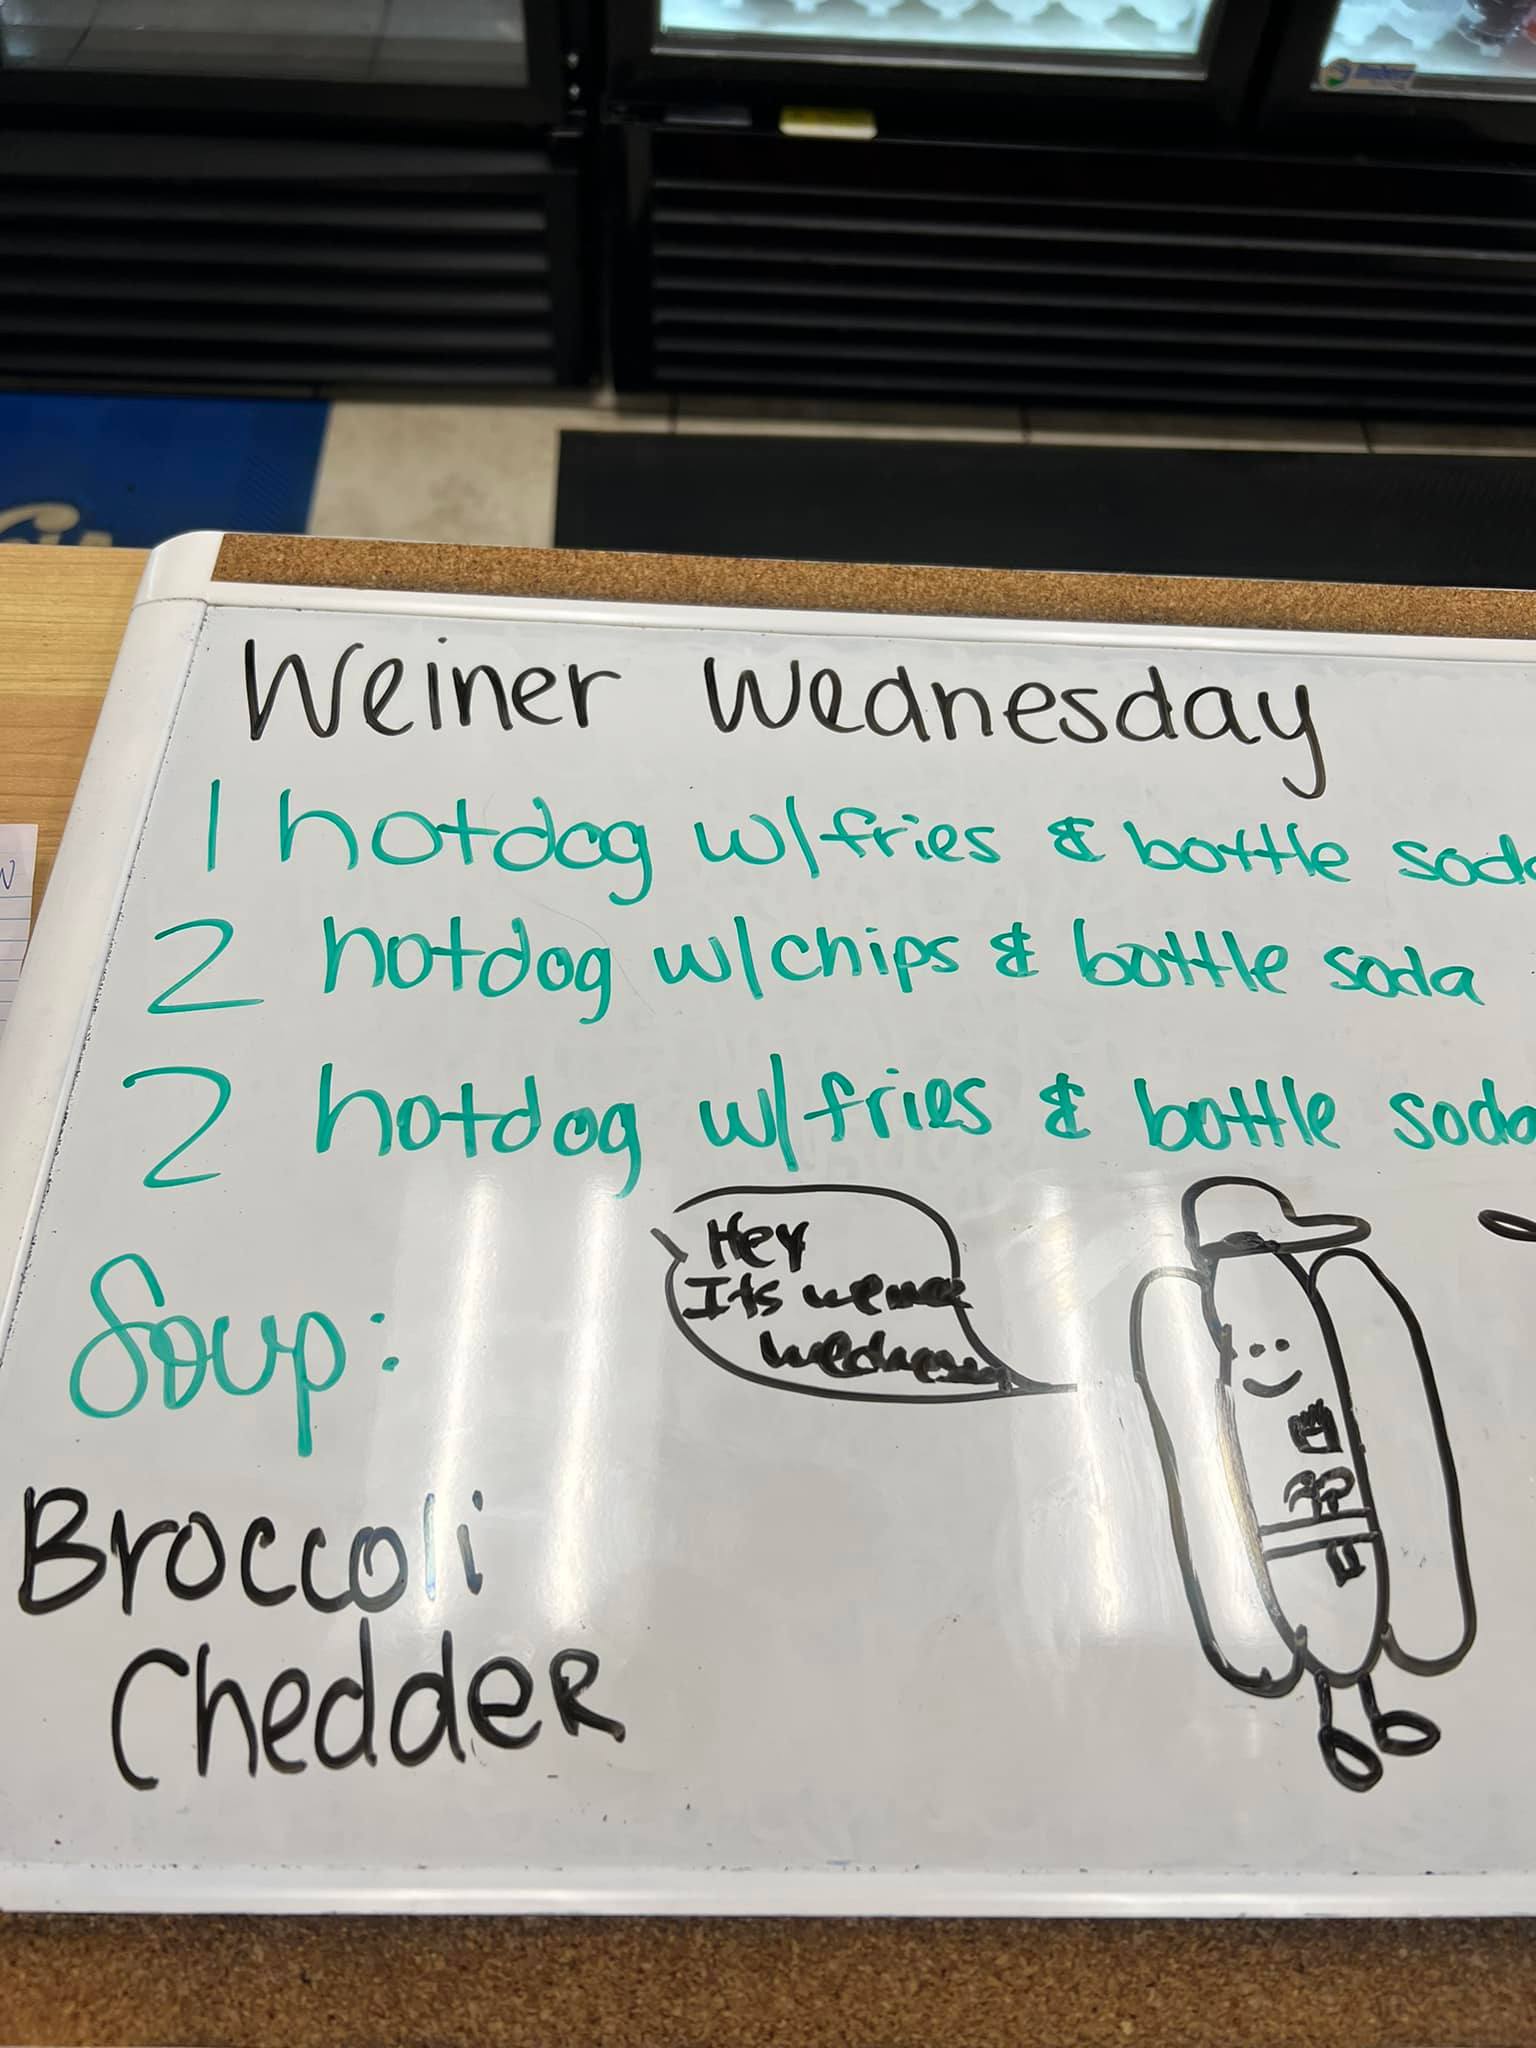 Weiner Wednesday
1 hotdog w/fries & bottle soda
2 hotdog w/chips & bottle soda
2 hotdog w/fries & bottle soda
Hey
Its
Soup:
Broccoli
CheddeR